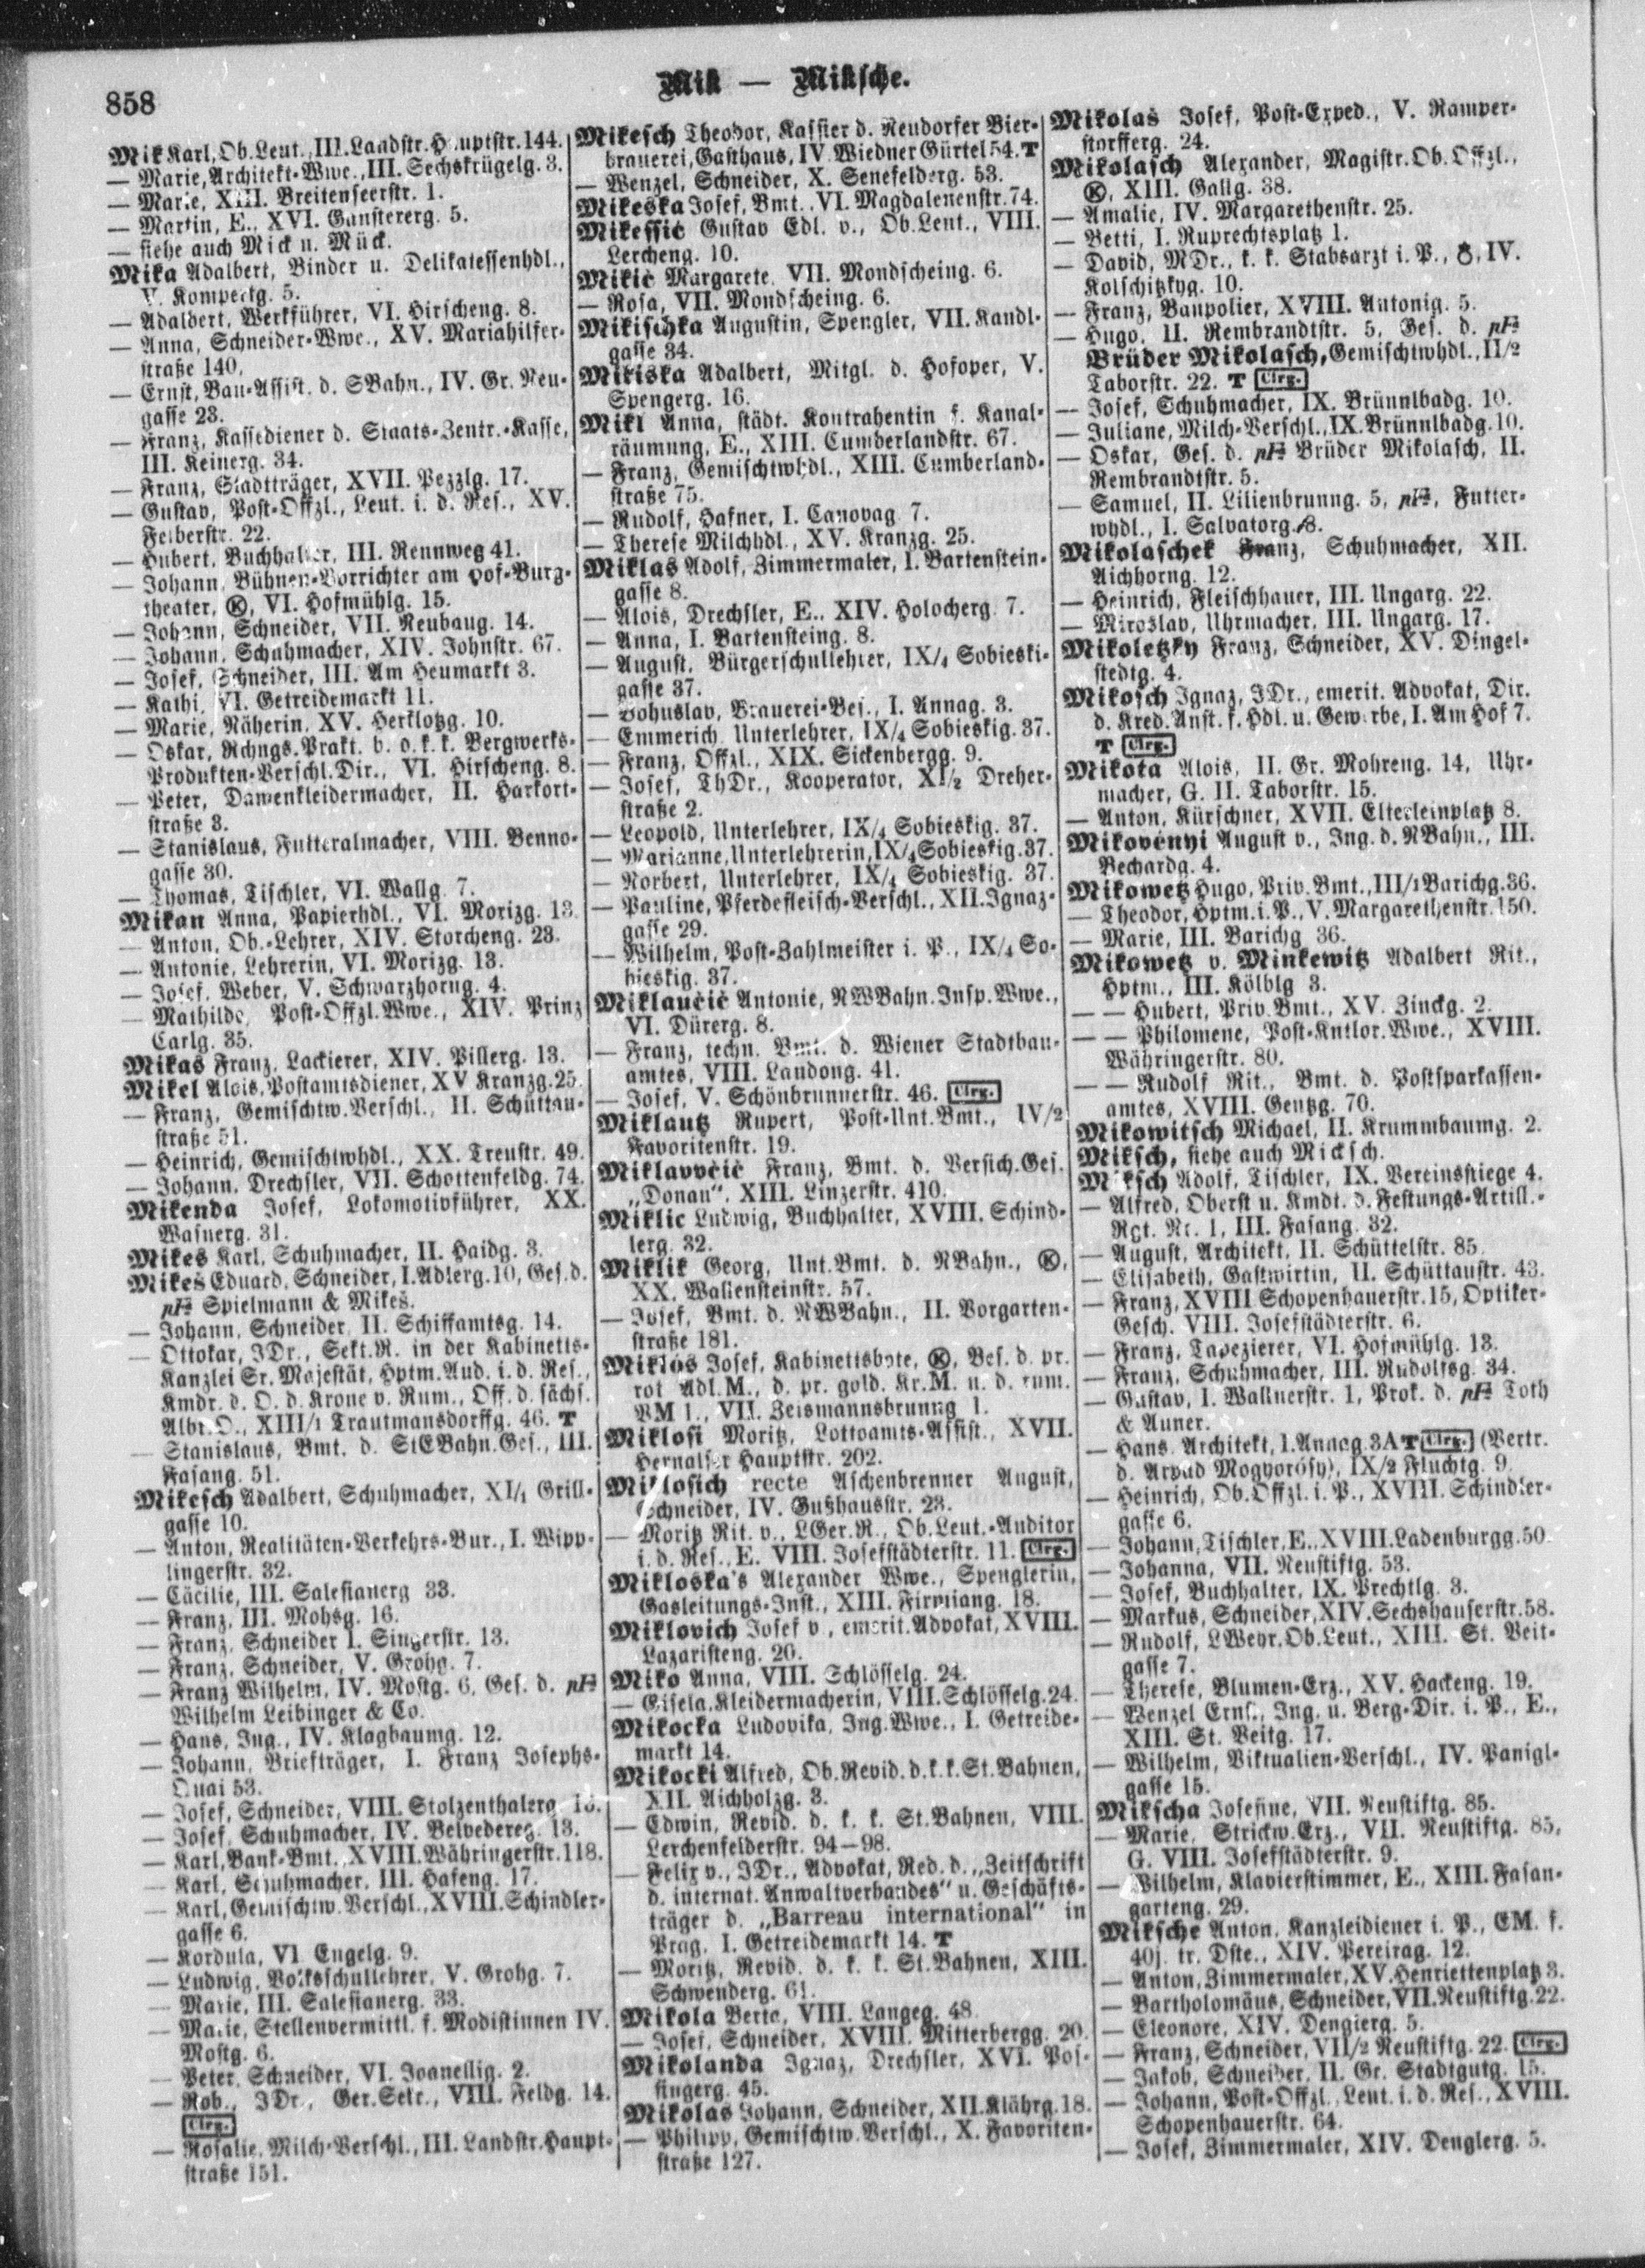 858
Mik — Miksche.
Mik Karl, Ob.Leut., III. Landstr.Hauptstr. 144.
— Marie, Architekt-Wwe., III. Sechskrügelg. 3.
— Marie, XIII. Breitenseerstr. 1.
— Martin, E., XVI. Ganstererg. 5.
— siehe auch Mick u. Mück.
Mika Adalbert, Binder u. Delikatessenhdl.,
V. Kompertg. 5.
— Adalbert, Werkführer, VI. Hirscheng. 8.
— Anna, Schneider-Wwe., XV. Mariahilfer-
straße 140.
— Ernst, Bau-Assist. d. SBahn., IV. Gr. Neu-
gasse 23.
— Franz, Kassediener d. Staats-Zentr.-Kasse,
III. Keinerg. 34.
— Franz, Stadtträger, XVII. Pezzlg. 17.
— Gustav, Post-Offzl., Leut. i. d. Res., XV.
Felberstr. 22.
— Hubert, Buchhalter, III. Rennweg 41.
— Johann, Bühnen-Vorrichter am Hof-Burg-
theater, Ⓚ, VI. Hofmühlg. 15.
— Johann, Schneider, VII. Neubaug. 14.
— Johann, Schuhmacher, XIV. Johnstr. 67.
— Josef, Schneider, III. Am Heumarkt 3.
— Kathi, VI. Getreidemarkt 11.
— Marie, Näherin, XV. Herklotzg. 10.
— Oskar, Rchngs.Prakt. b. o. k. k. Bergwerks-
Produkten-Verschl.Dir., VI. Hirscheng. 8.
— Peter, Damenkleidermacher, II. Harkort-
straße 3.
— Stanislaus, Futteralmacher, VIII. Benno-
gasse 30.
— Thomas, Tischler, VI. Wallg. 7.
Mikan Anna, Papierhdl., VI. Morizg. 13.
— Anton, Ob.-Lehrer, XIV. Storcheng. 23.
— Antonie, Lehrerin, VI. Morizg. 13.
— Josef, Weber, V. Schwarzhorng. 4.
— Mathilde, Post-Offzl.Wwe., XIV. Prinz
Carlg. 35.
Mikas Franz, Lackierer, XIV. Pillerg. 13.
Mikel Alois, Postamtsdiener, XV. Kranzg. 25.
— Franz, Gemischtw.Verschl., II. Schüttau-
straße 51.
— Heinrich, Gemischtwhdl., XX. Treustr. 49.
— Johann, Drechsler, VII. Schottenfeldg. 74.
Mikenda Josef, Lokomotivführer, XX.
Wasnerg. 31.
Mikes Karl, Schuhmacher, II. Haidg. 3.
Mikeš Eduard, Schneider, I. Adlerg. 10, Ges. d.
pF Spielmann & Mikeš.
— Johann, Schneider, II. Schiffamtsg. 14.
— Ottokar, JDr., Sekt.R. in der Kabinetts-
Kanzlei Sr. Majestät, Hptm.Aud. i. d. Res.,
Kmdr. d. O. d. Krone v. Rum., Off. d. sächs.
Albr.O., XIII/1 Trautmansdorffg. 46. T
— Stanislaus, Bmt. d. StEBahn.Ges., III.
Fasang. 51.
Mikesch Adalbert, Schuhmacher, XI/1 Grill-
gasse 10.
— Anton, Realitäten-Verkehrs-Bur., I. Wipp-
lingerstr. 32.
— Cäcilie, III. Salesianerg. 33.
— Franz, III. Mohsg. 16.
— Franz, Schneider I. Singerstr. 13.
— Franz, Schneider, V. Grohg. 7.
— Franz Wilhelm, IV. Mostg. 6, Ges. d. pF
Wilhelm Leibinger & Co.
— Hans, Ing., IV. Klagbaumg. 12.
— Johann, Briefträger, I. Franz Josephs-
Quai 53.
— Josef, Schneider, VIII. Stolzenthalerg.
— Josef, Schuhmacher, IV. Belvedereg. 13.
— Karl, Bank-Bmt., XVIII. Währingerstr. 118.
— Karl, Schuhmacher, III. Hafeng. 17.
— Karl, Gemischtw.Verschl., XVIII. Schindler-
gasse 6.
— Kordula, VI Engelg. 9.
— Ludwig, Volksschullehrer, V. Grohg. 7.
— Marie, III. Salesianerg. 33.
— Marie, Stellenvermittl. f. Modistinnen IV.
Mostg. 6.
— Peter, Schneider, VI. Joanellig. 2.
— Rob., JDr., Ger.Sekr., VIII. Feldg. 14.
Clrg.
— Rosalie, Milch-Verschl., III. Landstr.Haupt-
straße 151.
Mikesch Theodor, Kassier d. Neudorfer Bier-
brauerei, Gasthaus, IV. Wiedner Gürtel 54. T
— Wenzel, Schneider, X. Senefelderg. 53.
Mikeska Josef, Bmt., VI. Magdalenenstr. 74.
Mikessić Gustav Edl. v., Ob.Leut., VIII.
Lercheng. 10.
Mikić Margarete, VII. Mondscheing. 6.
— Rosa, VII. Mondscheing. 6.
Mikischka Augustin, Spengler, VII. Kandl-
gasse 34.
Mikiska Adalbert, Mitgl. d. Hofoper, V.
Spengerg. 16.
Mikl Anna, städt. Kontrahentin f. Kanal-
räumung, E., XIII. Cumberlandstr. 67.
— Franz, Gemischtwhdl., XIII. Cumberland-
straße 75.
— Rudolf, Hafner, I. Canovag. 7.
— Therese Milchhdl., XV. Kranzg. 25.
Miklas Adolf, Zimmermaler, I. Bartenstein-
gasse 8.
— Alois, Drechsler, E., XIV. Holocherg. 7.
— Anna, I. Bartensteing. 8.
— August, Bürgerschullehrer, IX/4 Sobieski-
gasse 37.
— Bohuslav, Brauerei-Bes., I. Annag. 3.
— Emmerich, Unterlehrer, IX/4 Sobieskig. 37.
— Franz, Offzl., XIX. Sickenbergg. 9.
— Josef, ThDr., Kooperator, XI/2 Dreher-
straße 2.
— Leopold, Unterlehrer, IX/4 Sobieskig. 37.
— Marianne, Unterlehrerin, IX/4 Sobieskig. 37.
— Norbert, Unterlehrer, IX/4 Sobieskig. 37.
— Pauline, Pferdefleisch-Verschl., XII. Ignaz-
gasse 29.
— Wilhelm, Post-Zahlmeister i. P., IX/4 So-
bieskig. 37.
Miklaučič Antonie, NWBahn.Insp.Wwe.,
VI. Dürerg. 8.
— Franz, techn. Bmt. d. Wiener Stadtbau-
amtes, VIII. Laudong. 41.
— Josef, V. Schönbrunnerstr. 46. Clrg.
Miklautz Rupert, Post-Unt.Bmt., IV/2
Favoritenstr. 19.
Miklavvčič Franz, Bmt. d. Versich.Ges.
„Donau“, XIII. Linzerstr. 410.
Miklic Ludwig, Buchhalter, XVIII. Schind-
lerg. 32.
Miklik Georg, Unt.Bmt. d. NBahn., Ⓚ,
XX. Wallensteinstr. 57.
— Josef, Bmt. d. NWBahn., II. Vorgarten-
straße 181.
Miklós Josef, Kabinettsbote, Ⓚ, Bes. d. pr.
rot Adl.M., d. pr. gold. Kr.M. u. d. rum.
VM 1., VII. Zeismannsbrunng 1.
Miklosi Moritz, Lottoamts-Assist., XVII.
Hernalser Hauptstr. 202.
Miklosich recte Aschenbrenner August,
Schneider, IV. Gußhausstr. 23.
— Moritz Rit. v., LGer.R., Ob.Leut.-Auditor
i. d. Res., E. VIII. Josefstädterstr. 11. Clrg.
Mikloska's Alexander Wwe., Spenglerin,
Gasleitungs-Inst., XIII. Firmiang. 18.
Miklovich Josef v., emerit. Advokat, XVIII.
Lazaristeng. 20.
Miko Anna, VIII. Schlösselg. 24.
— Gisela, Kleidermacherin, VIII. Schlösselg. 24.
Mikocka Ludovika, Ing.Wwe., I. Getreide-
markt 14.
Mikocki Alfred, Ob.Revid. d. k. k. St.Bahnen,
XII. Aichholzg. 3.
— Edwin, Revid. d. k. k. St.Bahnen, VIII.
Lerchenfelderstr. 94—98.
— Felix v., JDr., Advokat, Red. d. „Zeitschrift
d. internat. Anwaltverbandes“ u. Geschäfts-
träger d. „Barreau international“ in
Prag, I. Getreidemarkt 14. T
— Moritz, Revid. d. k. k. St.Bahnen, XIII.
Schwenderg. 61.
Mikola Berta, VIII. Langeg. 48.
— Josef, Schneider, XVIII. Mitterbergg. 20.
Mikolanda Ignaz, Drechsler, XVI. Pos-
singerg. 45.
Mikolas Johann, Schneider, XII. Klährg. 18.
— Philipp, Gemischtw.Verschl., X. Favoriten-
straße 127.
Mikolaš Josef, Post-Exped., V. Ramper-
storfferg. 24.
Mikolasch Alexander, Magistr.Ob.Offzl.,
Ⓚ, XIII. Gallg. 38.
— Amalie, IV. Margarethenstr. 25.
— Betti, I. Ruprechtsplatz 1.
— David, MDr., k. k. Stabsarzt i. P., IV.
Kolschitzkyg. 10.
— Franz, Baupolier, XVIII. Antonig. 5.
— Hugo, II. Rembrandtstr. 5, Ges. d. pF
Brüder Mikolasch, Gemischtwhdl., II/2
Taborstr. 22. T Clrg.
— Josef, Schuhmacher, IX. Brünnlbadg. 10.
— Juliane, Milch-Verschl., IX. Brünnlbadg. 10.
— Oskar, Ges. d. pF Brüder Mikolasch, II.
Rembrandtstr. 5.
— Samuel, II. Lilienbrunng. 5, pF, Futter-
whdl., I. Salvatorg. 8.
Mikolaschek Franz, Schuhmacher, XII.
Aichhorng. 12.
— Heinrich, Fleischhauer, III. Ungarg. 22.
— Miroslav, Uhrmacher, III. Ungarg. 17.
Mikoletzky Franz, Schneider, XV. Dingel-
stedtg. 4.
Mikosch Ignaz, JDr., emerit. Advokat, Dir.
d. Kred.Anst. f. Hdl. u. Gewerbe, I. Am Hof 7.
T Clrg.
Mikota Alois, II. Gr. Mohreng. 14, Uhr-
macher, G. II. Taborstr. 15.
— Anton, Kürschner, XVII. Elterleinplatz 8.
Mikovényi August v., Ing. d. NBahn., III.
Bechardg. 4.
Mikowetz Hugo, Priv.Bmt., III/1 Barichg. 36.
— Theodor, Hptm. i. P., V. Margarethenstr. 150.
— Marie, III. Barichg 36.
Mikowetz v. Minkewitz Adalbert Rit.,
Hptm., III. Kölblg 3.
— — Hubert, Priv.Bmt., XV. Zinckg. 2.
— — Philomene, Post-Kntlor.Wwe., XVIII.
Währingerstr. 80.
— — Rudolf Rit., Bmt. d. Postsparkassen-
amtes, XVIII. Gentzg. 70.
Mikowitsch Michael, II. Krummbaumg. 2.
Miksch, siehe auch Micksch.
Miksch Adolf, Tischler, IX. Vereinsstiege 4.
— Alfred, Oberst u. Kmdt. d. Festungs-Artill.-
Rgt. Nr. 1, III. Fasang. 32.
— August, Architekt, II. Schüttelstr. 85.
— Elisabeth, Gastwirtin, II. Schüttaustr. 43.
— Franz, XVIII Schopenhauerstr. 15, Optiker-
Gesch. VIII. Josefstädterstr. 6.
— Franz, Tapezierer, VI. Hofmühlg. 13.
— Franz, Schuhmacher, III. Rudolfsg. 34.
— Gustav, I. Wallnerstr. 1, Prok. d. pF Toth
& Auner.
— Hans, Architekt, I. Annag. 3A T Clrg. (Vertr.
d. Arpad Mogyorósy), IX/2 Fluchtg. 9.
— Heinrich, Ob.Offzl. i. P., XVIII. Schindler-
gasse 6.
— Johann, Tischler, E., XVIII. Ladenburgg. 50.
— Johanna, VII. Neustiftg. 53.
— Josef, Buchhalter, IX. Prechtlg. 3.
— Markus, Schneider, XIV. Sechshauserstr. 58.
— Rudolf, LWehr.Ob.Leut., XIII. St. Veit-
gasse 7.
— Therese, Blumen-Erz., XV. Hackeng. 19.
— Wenzel Ernst, Ing. u. Berg-Dir. i. P., E.,
XIII. St. Veitg. 17.
— Wilhelm, Viktualien-Verschl., IV. Panigl-
gasse 15.
Mikscha Josefine, VII. Neustiftg. 85.
— Marie, Strickw.Erz., VII. Neustiftg. 85,
G. VIII. Josefstädterstr. 9.
— Wilhelm, Klavierstimmer, E., XIII. Fasan-
garteng. 29.
Miksche Anton, Kanzleidiener i. P., EM. f.
40j. tr. Dste., XIV. Pereirag. 12.
— Anton, Zimmermaler, XV. Henriettenplatz 3.
— Bartholomäus, Schneider, VII. Neustiftg. 22.
— Eleonore, XIV. Denglerg. 5.
— Franz, Schneider, VII/2 Neustiftg. 22. Clrg.
— Jakob, Schneider, II. Gr. Stadtgutg. 15.
— Johann, Post-Offzl., Leut. i. d. Res., XVIII.
Schopenhauerstr. 64.
— Josef, Zimmermaler, XIV. Denglerg. 5.